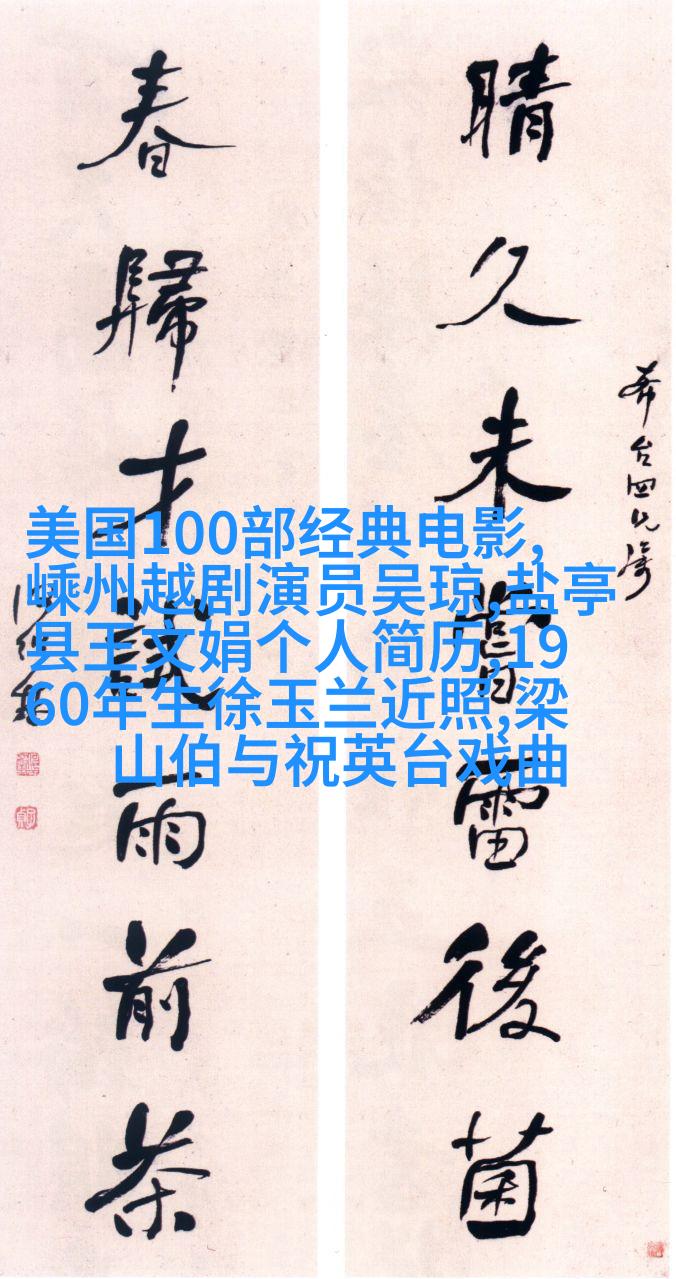 晴久未嘗雷後菌
春歸才試雨前茶
美国100部经典电影,
嵊州越剧演员吴琼,盐亭
县王文娟个人简历,19
60年生徐玉兰近照,梁
山伯与祝英台戏曲